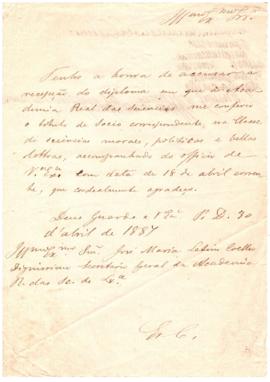 Tenho a honra de accusar a
recepção do diploma em que a Aca-
demia Real das sciencias me conferio
o titulo de Socio correspondente, na Classe
de sciencias moraes, politicas e bellas
lettras, acompanhado do officio de
V. Ex.ª com data de 18 de abril corren-
te, que cordealmente agradeço.
Deus Guarde a V. Ex.ª P. D. 30
d'abril de 1887
Snr. José Maria Latino Coelho
Dignissimo Secretario Geral da Academia
R. das Sc. de Lx.ª